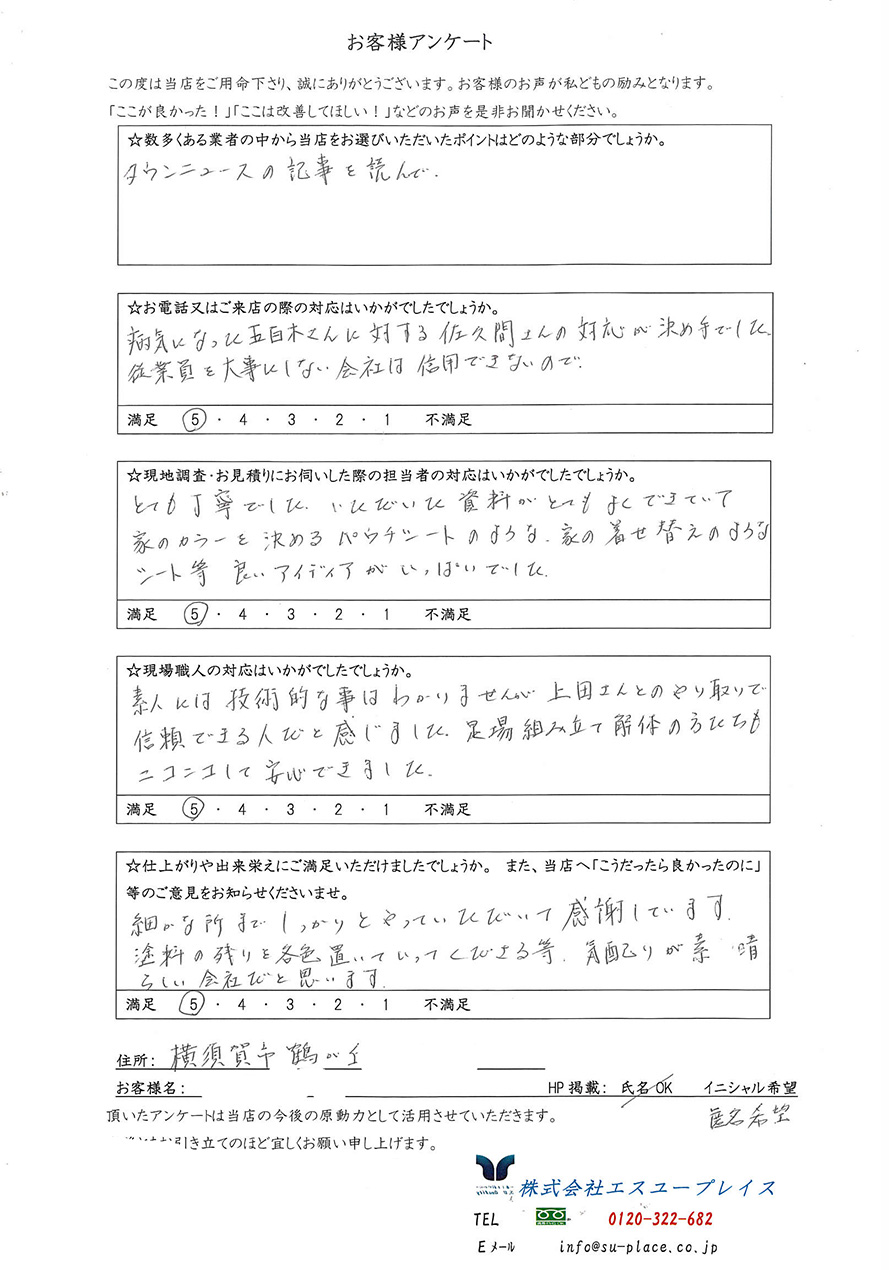 お客様アンケート
この度は当店をご用命下さり、誠にありがとうございます。お客様のお声が私どもの励みとなります。
「ここが良かった！」「ここは改善してほしい！」などのお声を是非お聞かせください。
☆数多くある業者の中から当店をお選びいただいたポイントはどのような部分でしょうか。
タウンニュースの記事を読んで.
☆お電話又はご来店の際の対応はいかがでしたでしょうか。
病気になった五百木さんに対する佐久間さんの対応が決め手でした.
従業員を大事にしない会社は信用できないので.
満足 5 ・ 4 ・ 3 ・ 2 ・ 1 不満足
☆現地調査・お見積りにお伺いした際の担当者の対応はいかがでしたでしょうか。
とても丁寧でした. いただいた資料がとてもよくできていて
家のカラーを決めるパウチシートのような. 家の着せ替えのような
シート等 良いアイディアがいっぱいでした.
満足 5 ・ 4 ・ 3 ・ 2 ・ 1 不満足
☆現場職人の対応はいかがでしたでしょうか。
素人には技術的な事はわかりませんが 上田さんとのやり取りで
信頼できる人だと感じました. 足場組み立て解体の方たちも
ニコニコして安心できました.
満足 5 ・ 4 ・ 3 ・ 2 ・ 1 不満足
☆仕上がりや出来栄えにご満足いただけましたでしょうか。 また、当店へ「こうだったら良かったのに」
等のご意見をお知らせくださいませ。
細かな所までしっかりとやっていただいて感謝しています.
塗料の残りを各色置いていってくださる等. 気配りが素晴
らしい会社だと思います.
満足 5 ・ 4 ・ 3 ・ 2 ・ 1 不満足
住所： 横須賀市 鶴が丘
お客様名： HP 掲載： 氏名 OK イニシャル希望
匿名希望
頂いたアンケートは当店の今後の原動力として活用させていただきます。
引き立てのほど宜しくお願い申し上げます。
株式会社エスユープレイス
TEL 0120-322-682
Eメール info@su-place.co.jp